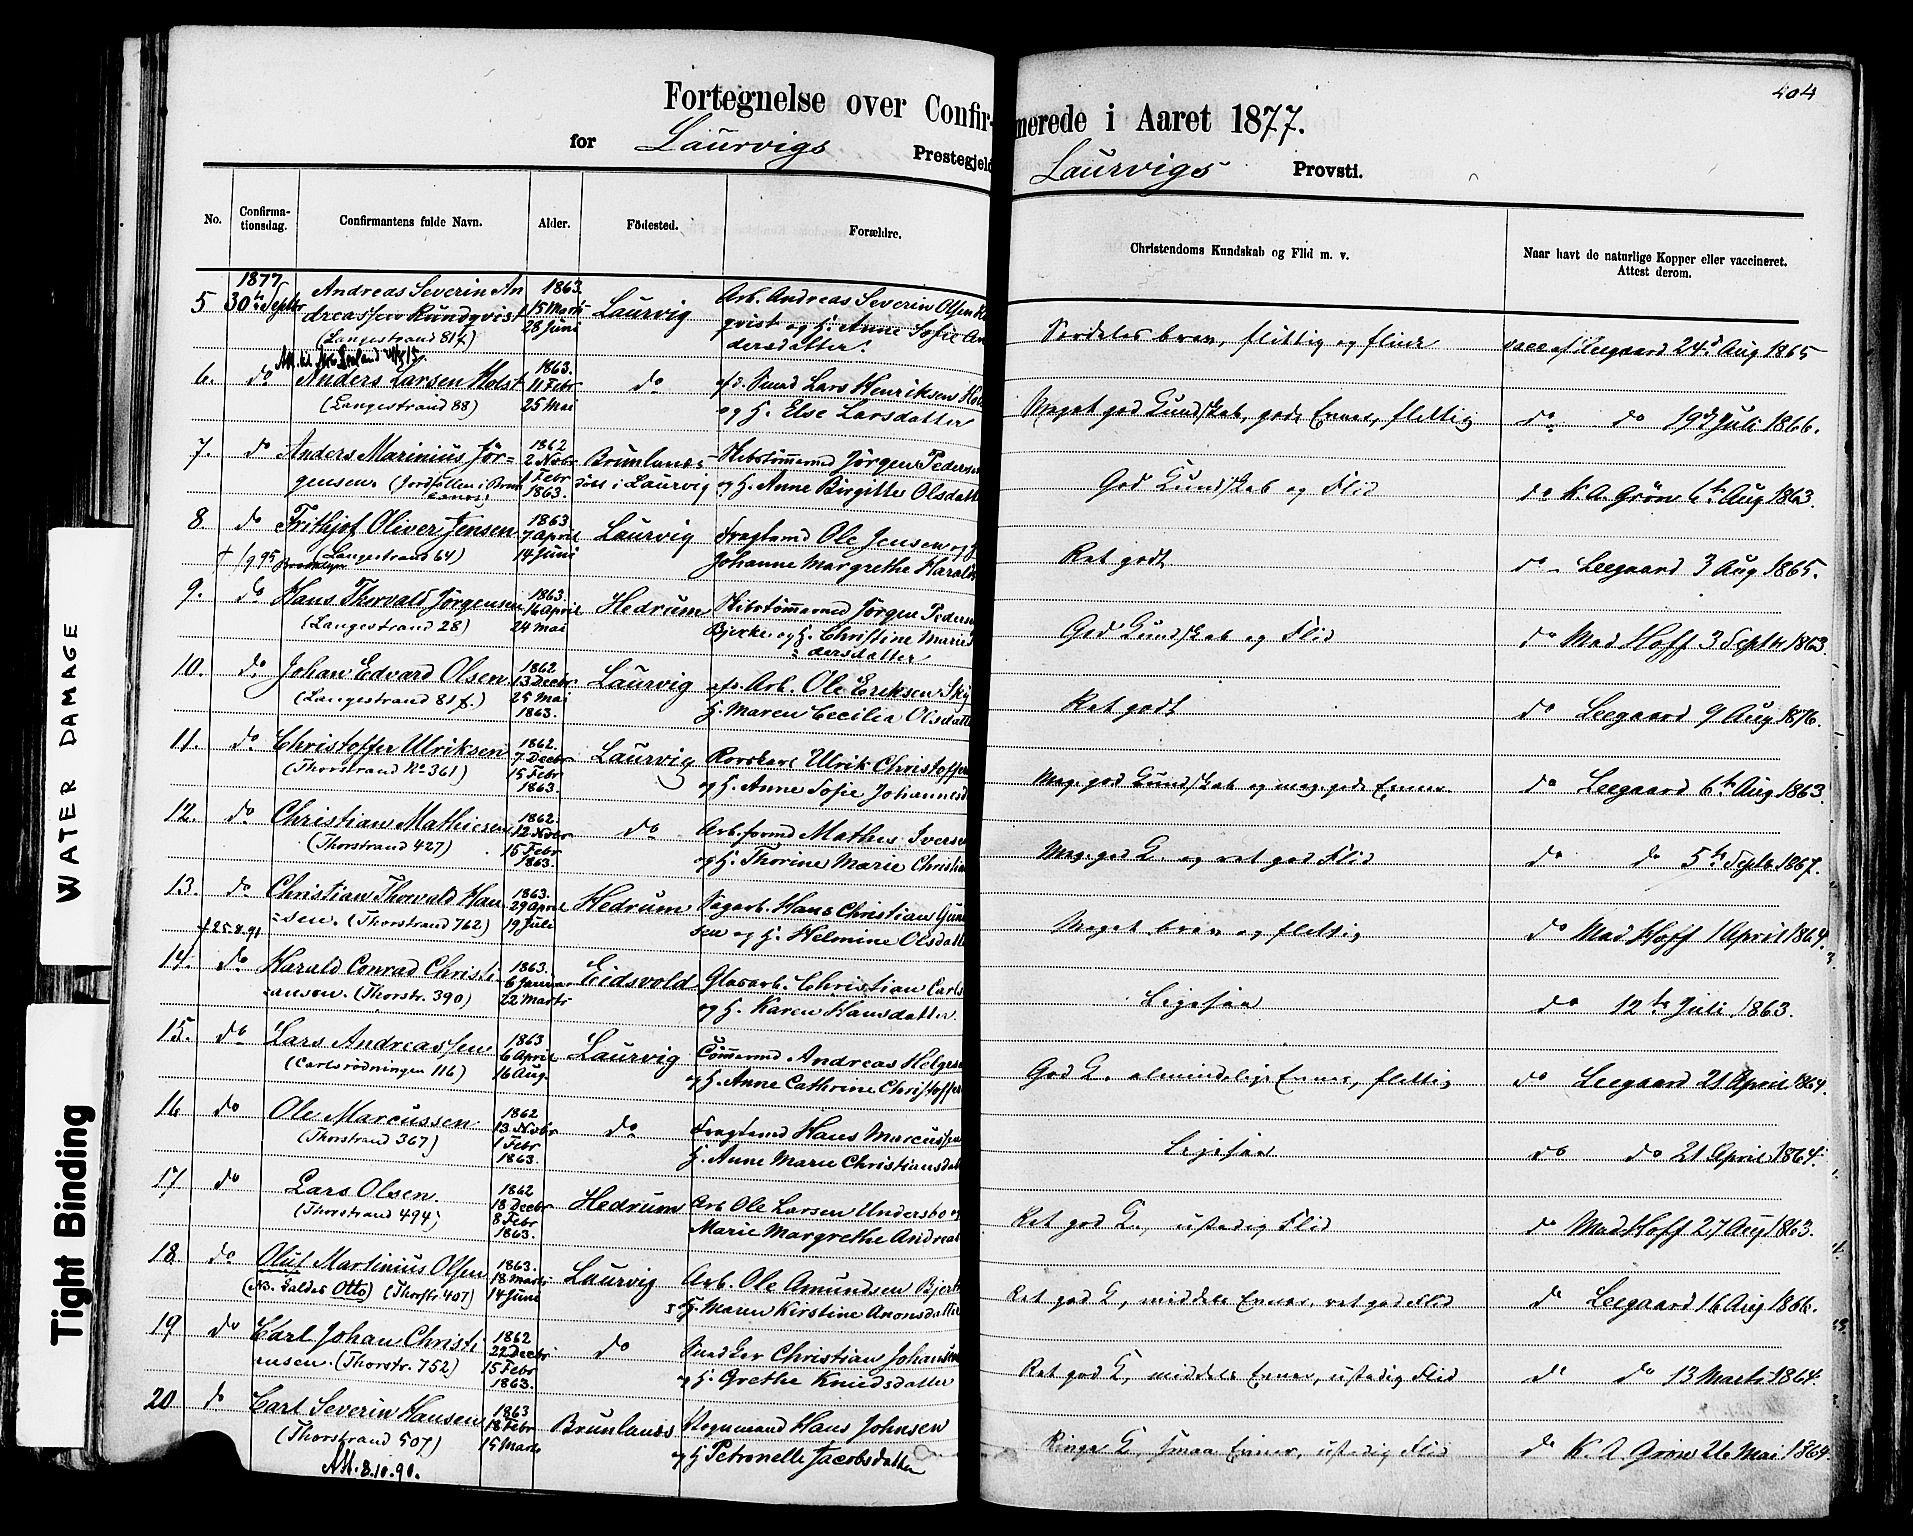 404
Fortegnelse over Confir-merede i Aaret 1877.
for Laurvigs Prestegjeld Laurvigs Provsti.
No. Confirma-tionsdag. Confirmantens fulde Navn. Alder. Födested. Forældre. Christendoms Kundskab og Flid m. v. Naar havt de naturlige Kopper eller vaccineret. Attest derom.
1877 Andreas Severin An 1863. Arb. Andreas Severin Olsen
5 30te Septbr dreassen Rundqvist 15 Marti Laurvig qvist og H. Anne Sofie An Serdeles brav, flittig og flink vacc af Leegaard 24d Aug 1865
(Langestrand 81f) 28 Juni dersdatter.
6. do Anders Larsen Holst 1863. 11 Febr do afd. Smed Lars Henriksen Meget god Kundskab, gode Evner, flittig do do 19d Juli 1866.
(Langestrand 88) 25 Mai og H. Else Larsdatter
7. do Anders Marinius Jör- 1862 2 Novbr Brunlanæs Skibstömermd Jörgen Peders God Kundskab og Flid do K. A. Grön 6te Aug 1863.
gensen. 1 Febr 1863. i Laurvig og H. Anne Birgitte Olsdatt
8 do Frithjof Oliver Jensen 1863 7 April Laurvig Fragtemd Ole Jensen og H Ret godt do - Leegaard 3 Aug 1865.
† 1/9 95 Brooklyn (Langestrand 64) 14 Juni Johanne Margrethe Harald
9. do Hans Thorvald Jörgensen 1863. 16 April Hedrum Skibstömermd Jörgen Peders God Kundskab og Flid do Mad Hoff 3 Septr 1863.
(Langestrand 28) 24 Mai Bjerke og H. Christine Marie
dersdatter
10. do Johan Edvard Olsen 1862 13 Decbr Laurvig afd. Arb. Ole Eriksen Sky Ret godt do Leegaard 9 Aug 1876.
(Langestrand 81f.) 25 Mai 1863. H. Maren Cecilia Olsdatt
11. do Christoffer Ulriksen 1862. 7 Decbr Laurvig Rorskarl Ulrik Christoffer Meg. god Kundskab og meg. gode Evner do Leegaard 6te Aug 1863.
(Thorstrand No 361) 15 Febr 1863. og H. Anne Sofie Johannesd
12. do Christian Mathiesen 1862. 12 Novbr do Arb.formd Mathis Iversen Meg. god K. og ret god Flid do do 5te Septr 1867.
(Thorstrand 427) 15 Febr 1863. og H. Thorine Marie Christia
13. do Christian Thorvald Han 1863. 29 April Hedrum Sagarb. Hans Christian Gun Meget brav og flittig do Mad Hoff 1 April 1864.
† 25.8.91 sen. (Thorstrand 762) 19 Juli sen og H. Helmine Olsdatt
14. do Harald Conrad Christi 1863. 6 Januar Eidsvold Glasarb. Christian Carls Ligesaa do 12te Juli 1863.
ansen. (Thorstr. 390) 22 Marts og H. Karen Hansdatter.
15. do Lars Andreassen 1863 6 April Laurvig Tömermd Andreas Holgers God K. almindelige Evner, flittig do Leegaard 21 April 1864.
(Carlsrödningen 116) 16 Aug. og H. Anne Cathrine Christoffer
16. do Ole Marcussen 1862 13 Novbr do Fragtemd Hans Marcussen Ligesaa do do 21 April 1864.
(Thorstrand 367) 1 Febr 1863. H. Anne Marie Christiansdat
17 do Lars Olsen 1862 18 Decbr Hedrum Arb. Ole Larsen Understo og Ret god K., ustadig Flid do Mad Hoff 27 Aug 1863.
(Thorstrand 494) 8 Febr 1863. Marie Margrethe Andreas
18. do Oluf Martinius Olsen 1863. 18 Marts Laurvig Arb. Ole Amundsen Bjerk Ret god K, middels Evner, ret god Flid do Leegaard 16 Aug 1866.
(NB. kaldes Otto) (Thorstr. 407) 14 Juni H. Maren Kirstine Aronsdatter
19 do Carl Johan Christi 1862 22 Decbr do Snedker Christian Johansen Ret god K, middels Evner, ustadig Flid do do 13 Marts 1864.
ensen. (Thorstr. 752) 15 Febr 1863. og H. Grethe Knudsdatter
20 do Carl Severin Hansen 1863 18 Febr Brunlanæs Vognmand Hans Johnsen Ringe K, smaa Evner, ustadig Flid do K. A. Grön 26 Mai 1864.
(Thorstrand 507) 15 Marts og H Petronelle Jacobsdatter
Att. 8.10.90.
WATER DAMAGE
Tight Binding